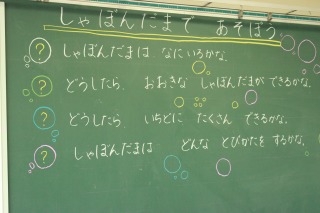 しゃぼんだまで あそぼう
? しゃぼんだまは なにいろかな。
? どうしたら、おおきな しゃぼんだまが できるかな。
? どうしたら、いちどに たくさん できるかな。
? しゃぼんだまは どんな とびかたを するかな。